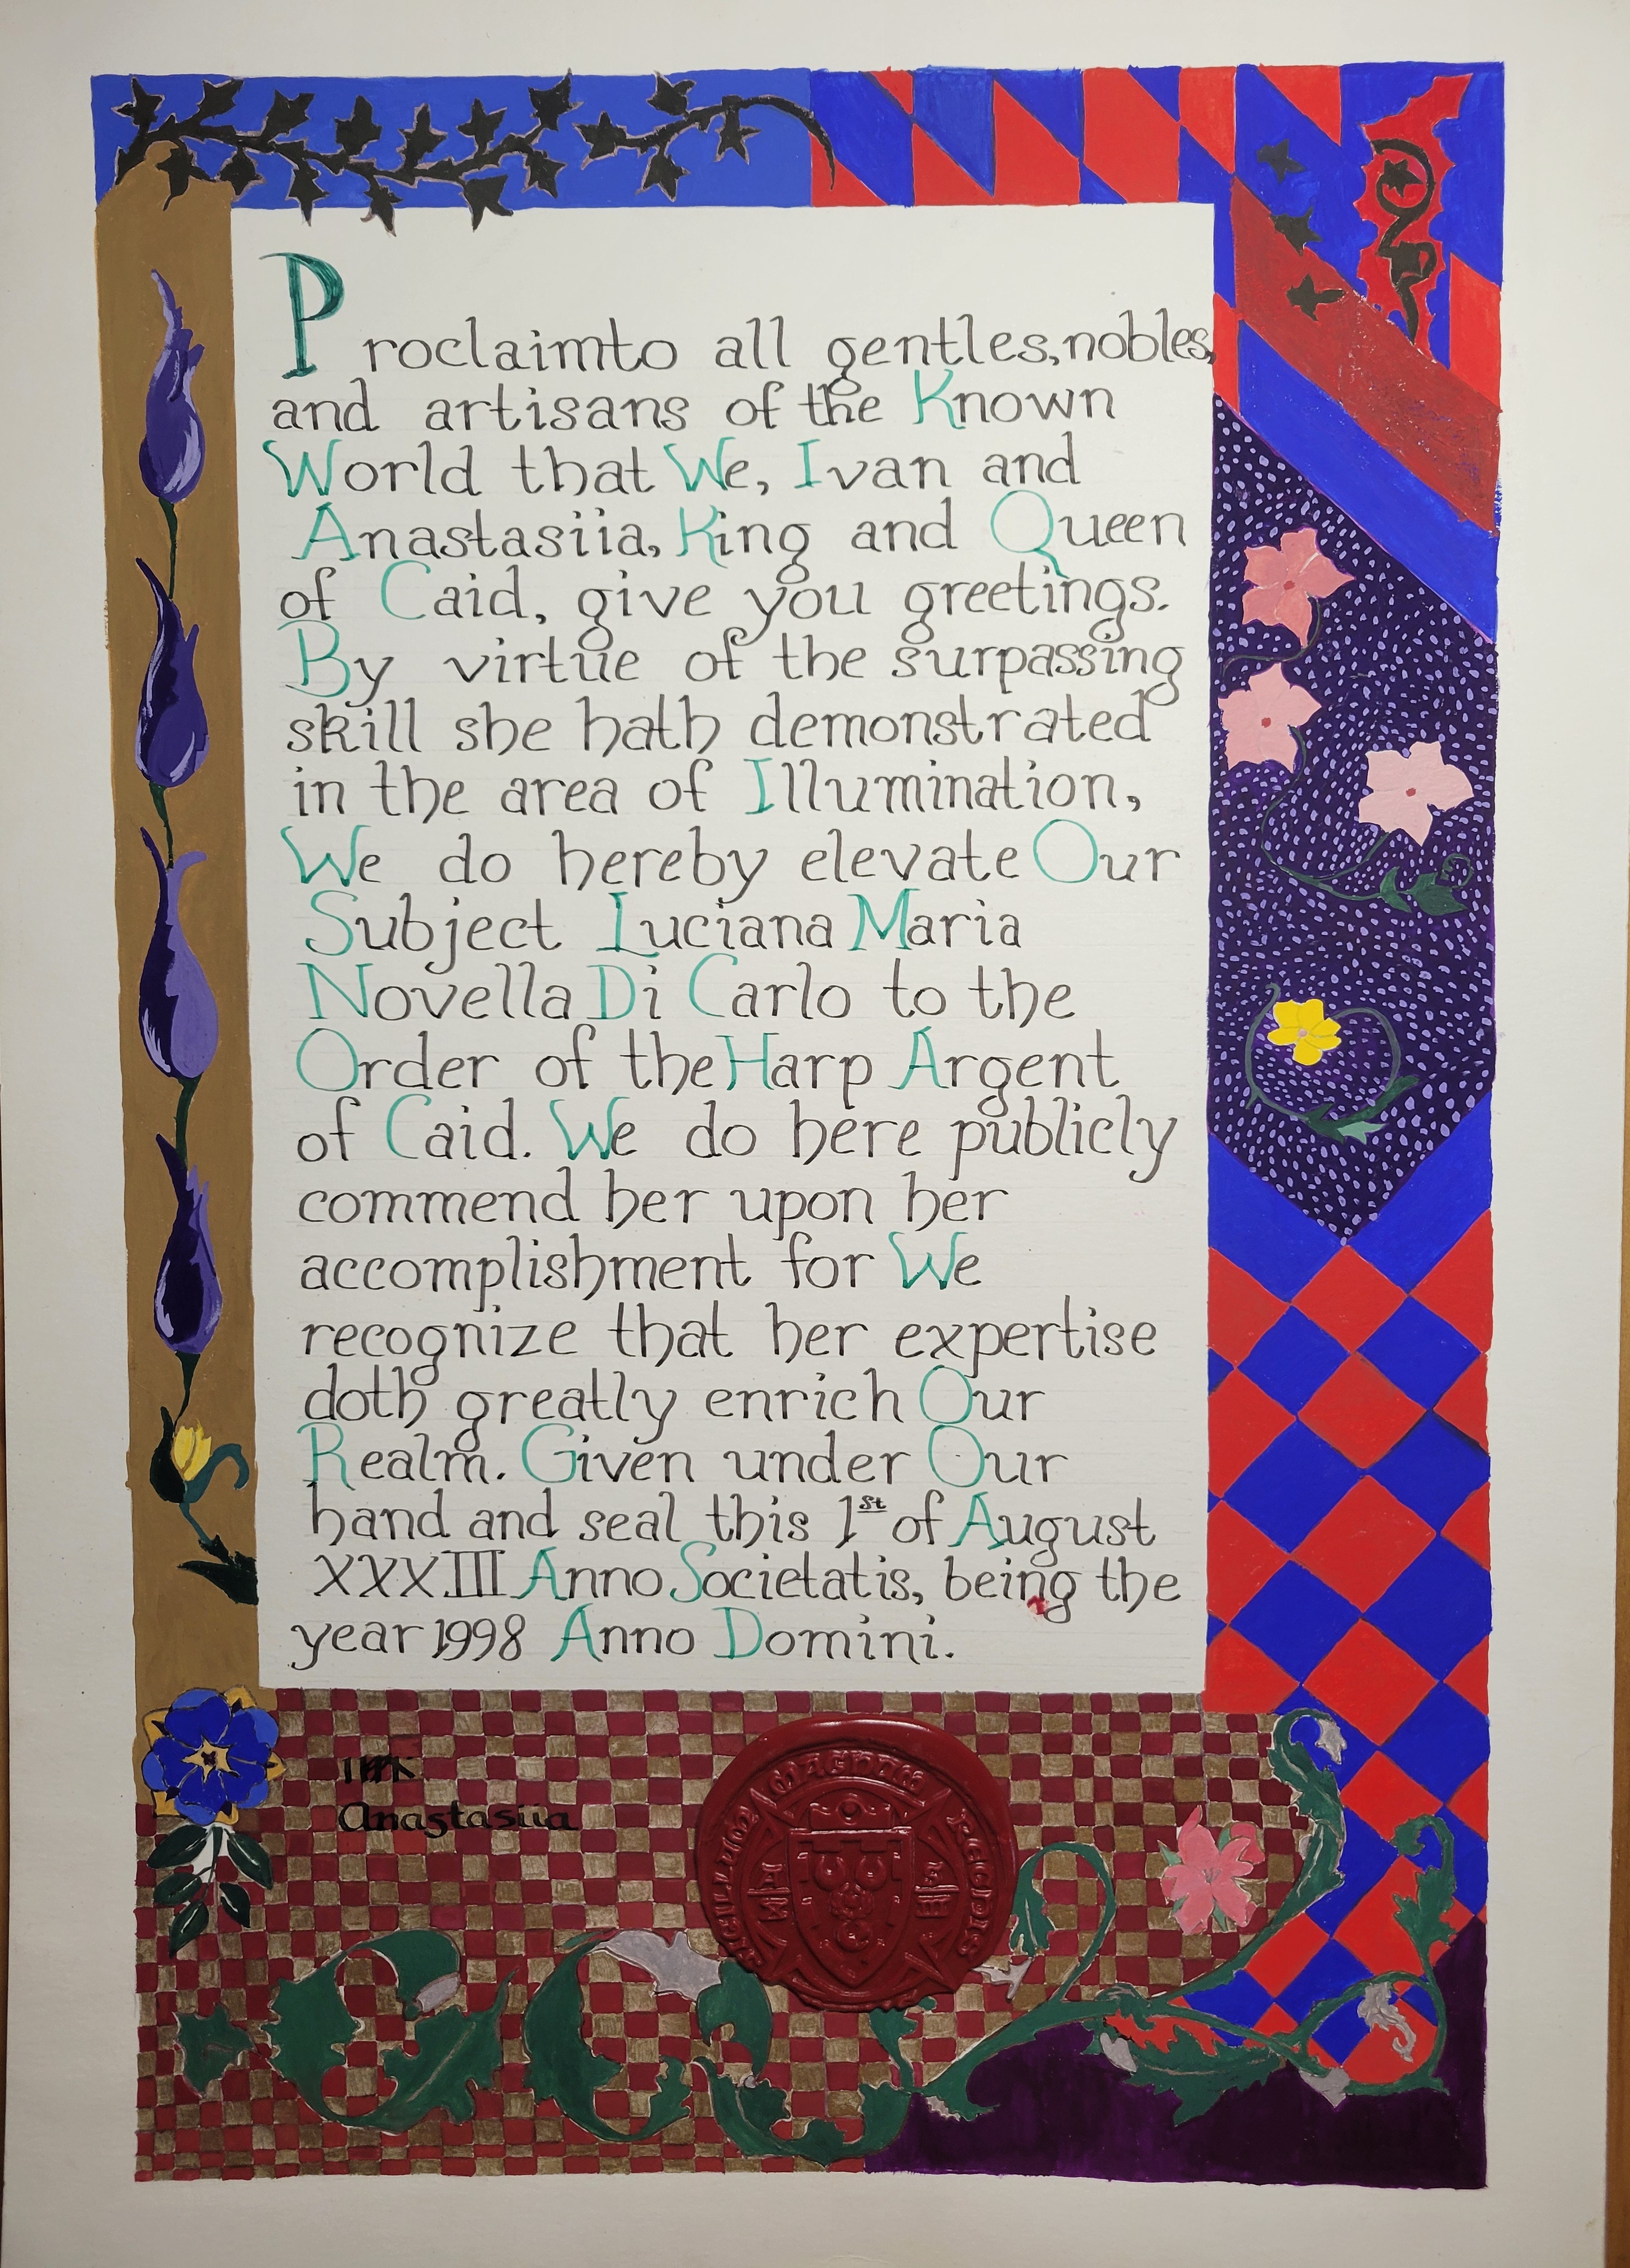 Proclaimto all gentles, nobles,
and artisans of the Known
World that We, Ivan and
Anastasiia, King and Queen
of Caid, give you greetings.
By virtue of the surpassing
skill she hath demonstrated
in the area of Illumination,
We do hereby elevate Our
Subject Luciana Maria
Novella Di Carlo to the
Order of the Harp Argent
of Caid. We do here publicly
commend her upon her
accomplishment for We
recognize that her expertise
doth greatly enrich Our
Realm. Given under Our
hand and seal this 1st of August
XXXIII Anno Societatis, being the
year 1998 Anno Domini.
Anastasiia
SIGILLUM MAGNUM